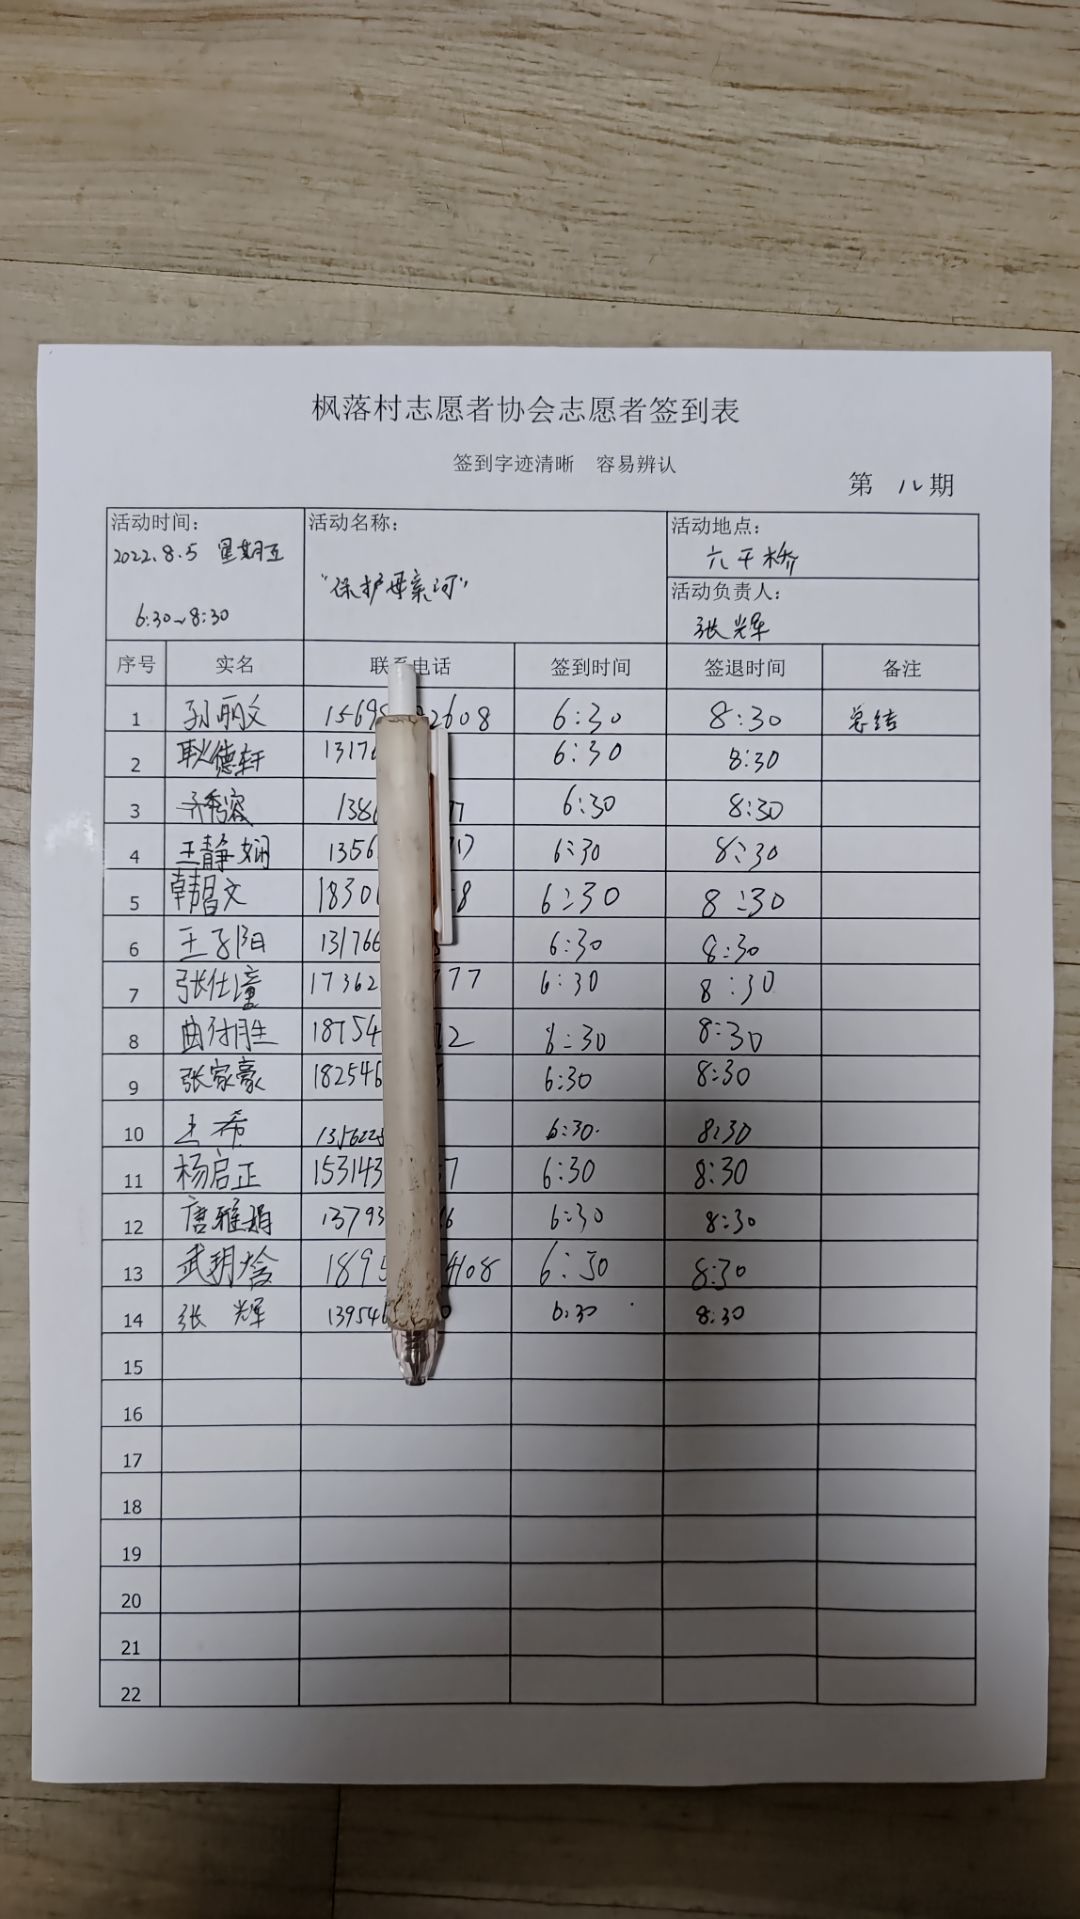 枫落村志愿者协会志愿者签到表
签到字迹清晰 容易辨认
第 八 期
活动时间: 活动名称: 活动地点:
2022.8.5 星期五 六干桥
"保护母亲河" 活动负责人:
6:30~8:30 张辉
序号 实名 联系电话 签到时间 签退时间 备注
1 孙丽文 15698 2608 6:30 8:30 总结
2 耿德轩 13176 6:30 8:30
3 齐秀容 138 77 6:30 8:30
4 王静娴 1356 717 6:30 8:30
5 韩昌文 1830 8 6:30 8:30
6 王子阳 131766 6:30 8:30
7 张仕潼 17362 777 6:30 8:30
8 曲付胜 18754 2 6:30 8:30
9 张家豪 182546 6:30 8:30
10 王希 135622 6:30 8:30
11 杨启正 153143 7 6:30 8:30
12 唐雅娟 13793 6 6:30 8:30
13 武玥焓 1895 408 6:30 8:30
14 张 辉 13954 0 6:30 8:30
15
16
17
18
19
20
21
22